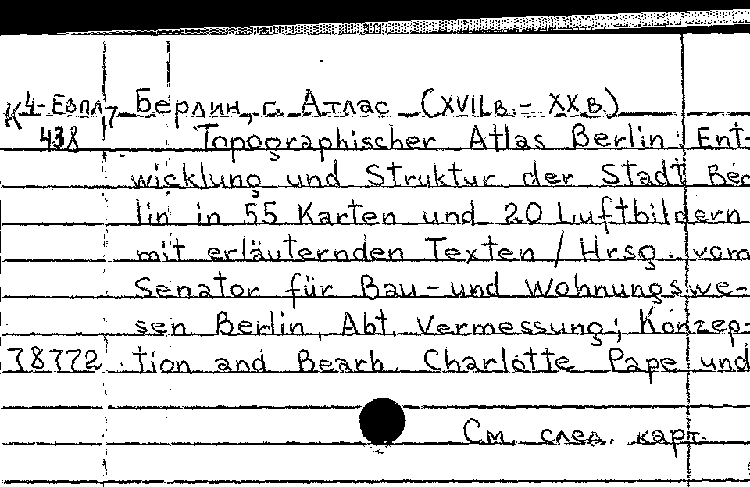 К4-Евпл,7 Берлин, г. Атлас (XVIIв.- XXв.)
438 Topographischer Atlas Berlin: Ent-
wicklung und Struktur der Stadt Ber
lin in 55 Karten und 20 Luftbildern
mit erläuternden Texten / Hrsg. vom
Senator für Bau- und Wohnungswe-
sen Berlin, Abt. Vermessung; Konzep-
78772 tion and Bearb. Charlotte Pape und
См. след. карт.